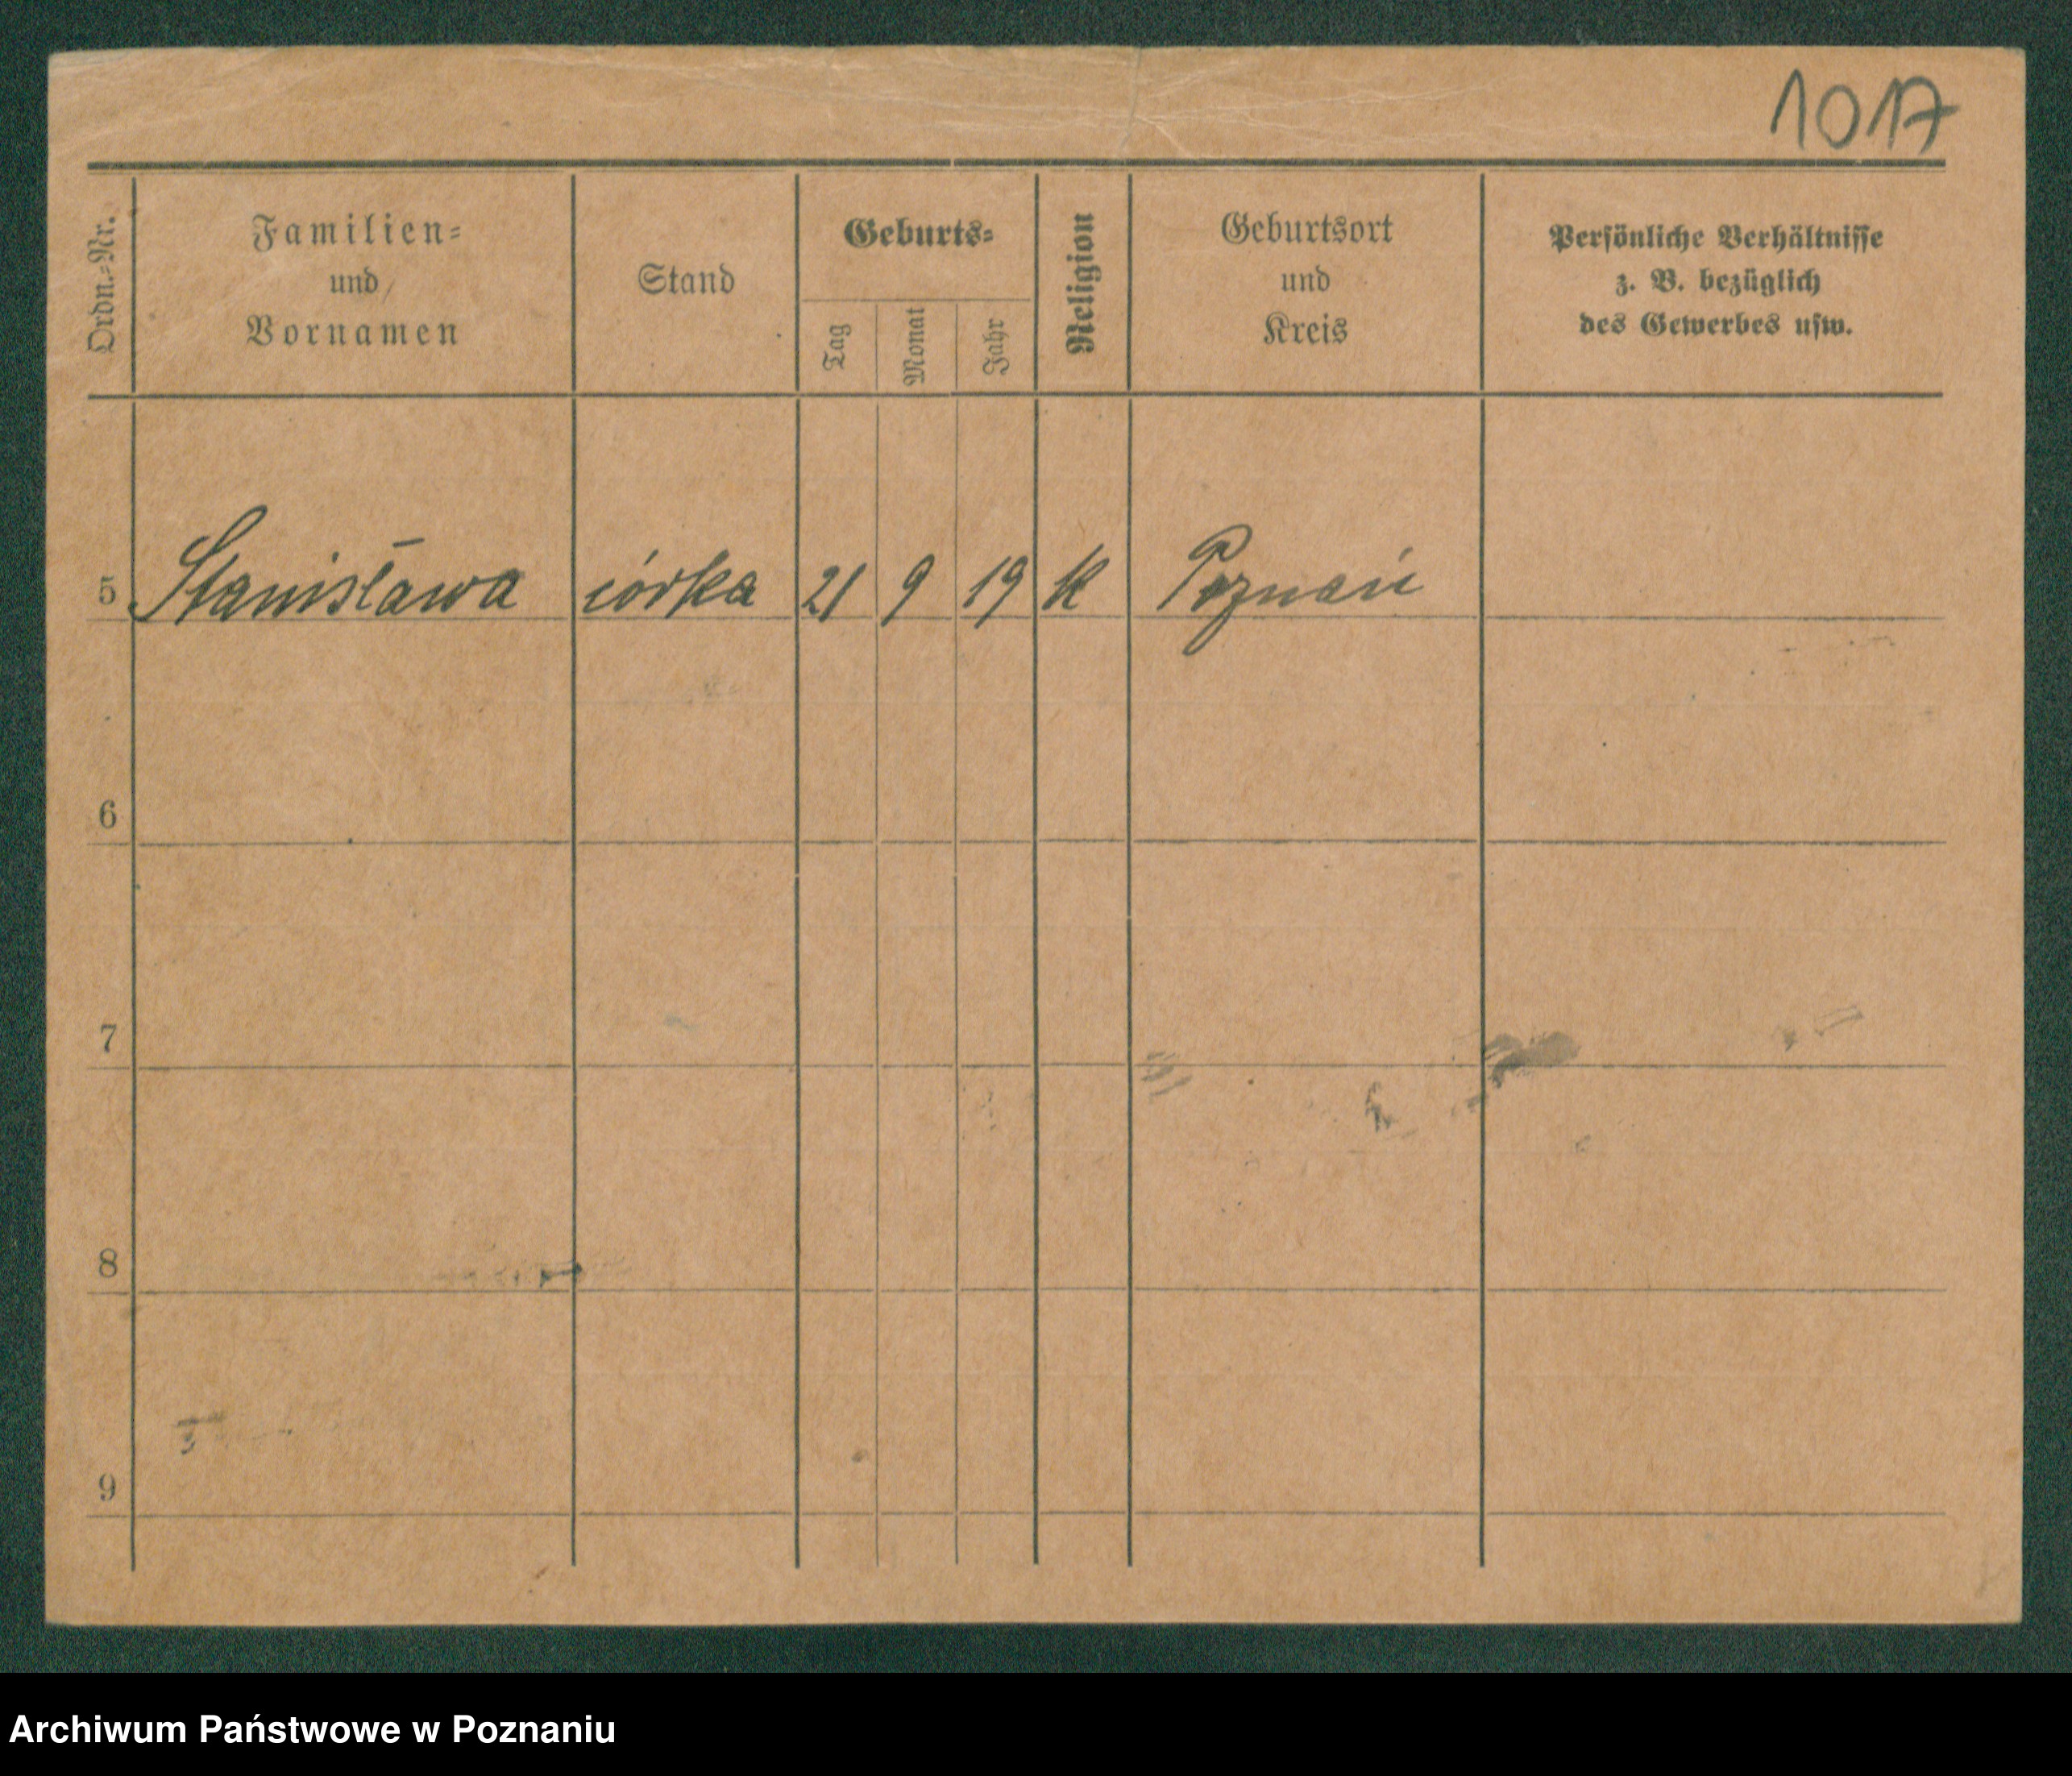 1017
Ordn.=Nr.
Familien=
und
Vornamen
Stand
Geburts=
Tag
Monat
Jahr
Religion
Geburtsort
und
Kreis
Persönliche Verhältnisse
z. B. bezüglich
des Gewerbes usw.
5 Stanisława córka 21 9 19 k Poznań
6
7
8
9
Archiwum Państwowe w Poznaniu